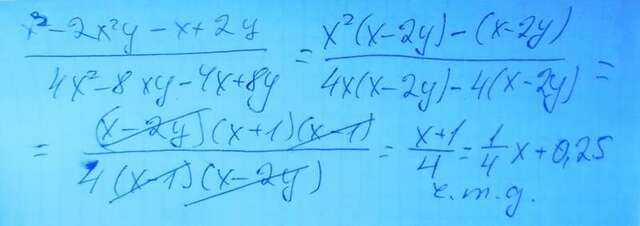 x³ - 2x²y - x + 2y / 4x² - 8xy - 4x + 8y = x²(x-2y) - (x-2y) / 4x(x-2y) - 4(x-2y) =
= (x-2y)(x+1)(x-1) / 4(x-1)(x-2y) = x+1 / 4 = 1/4 x + 0,25
ч.т.д.